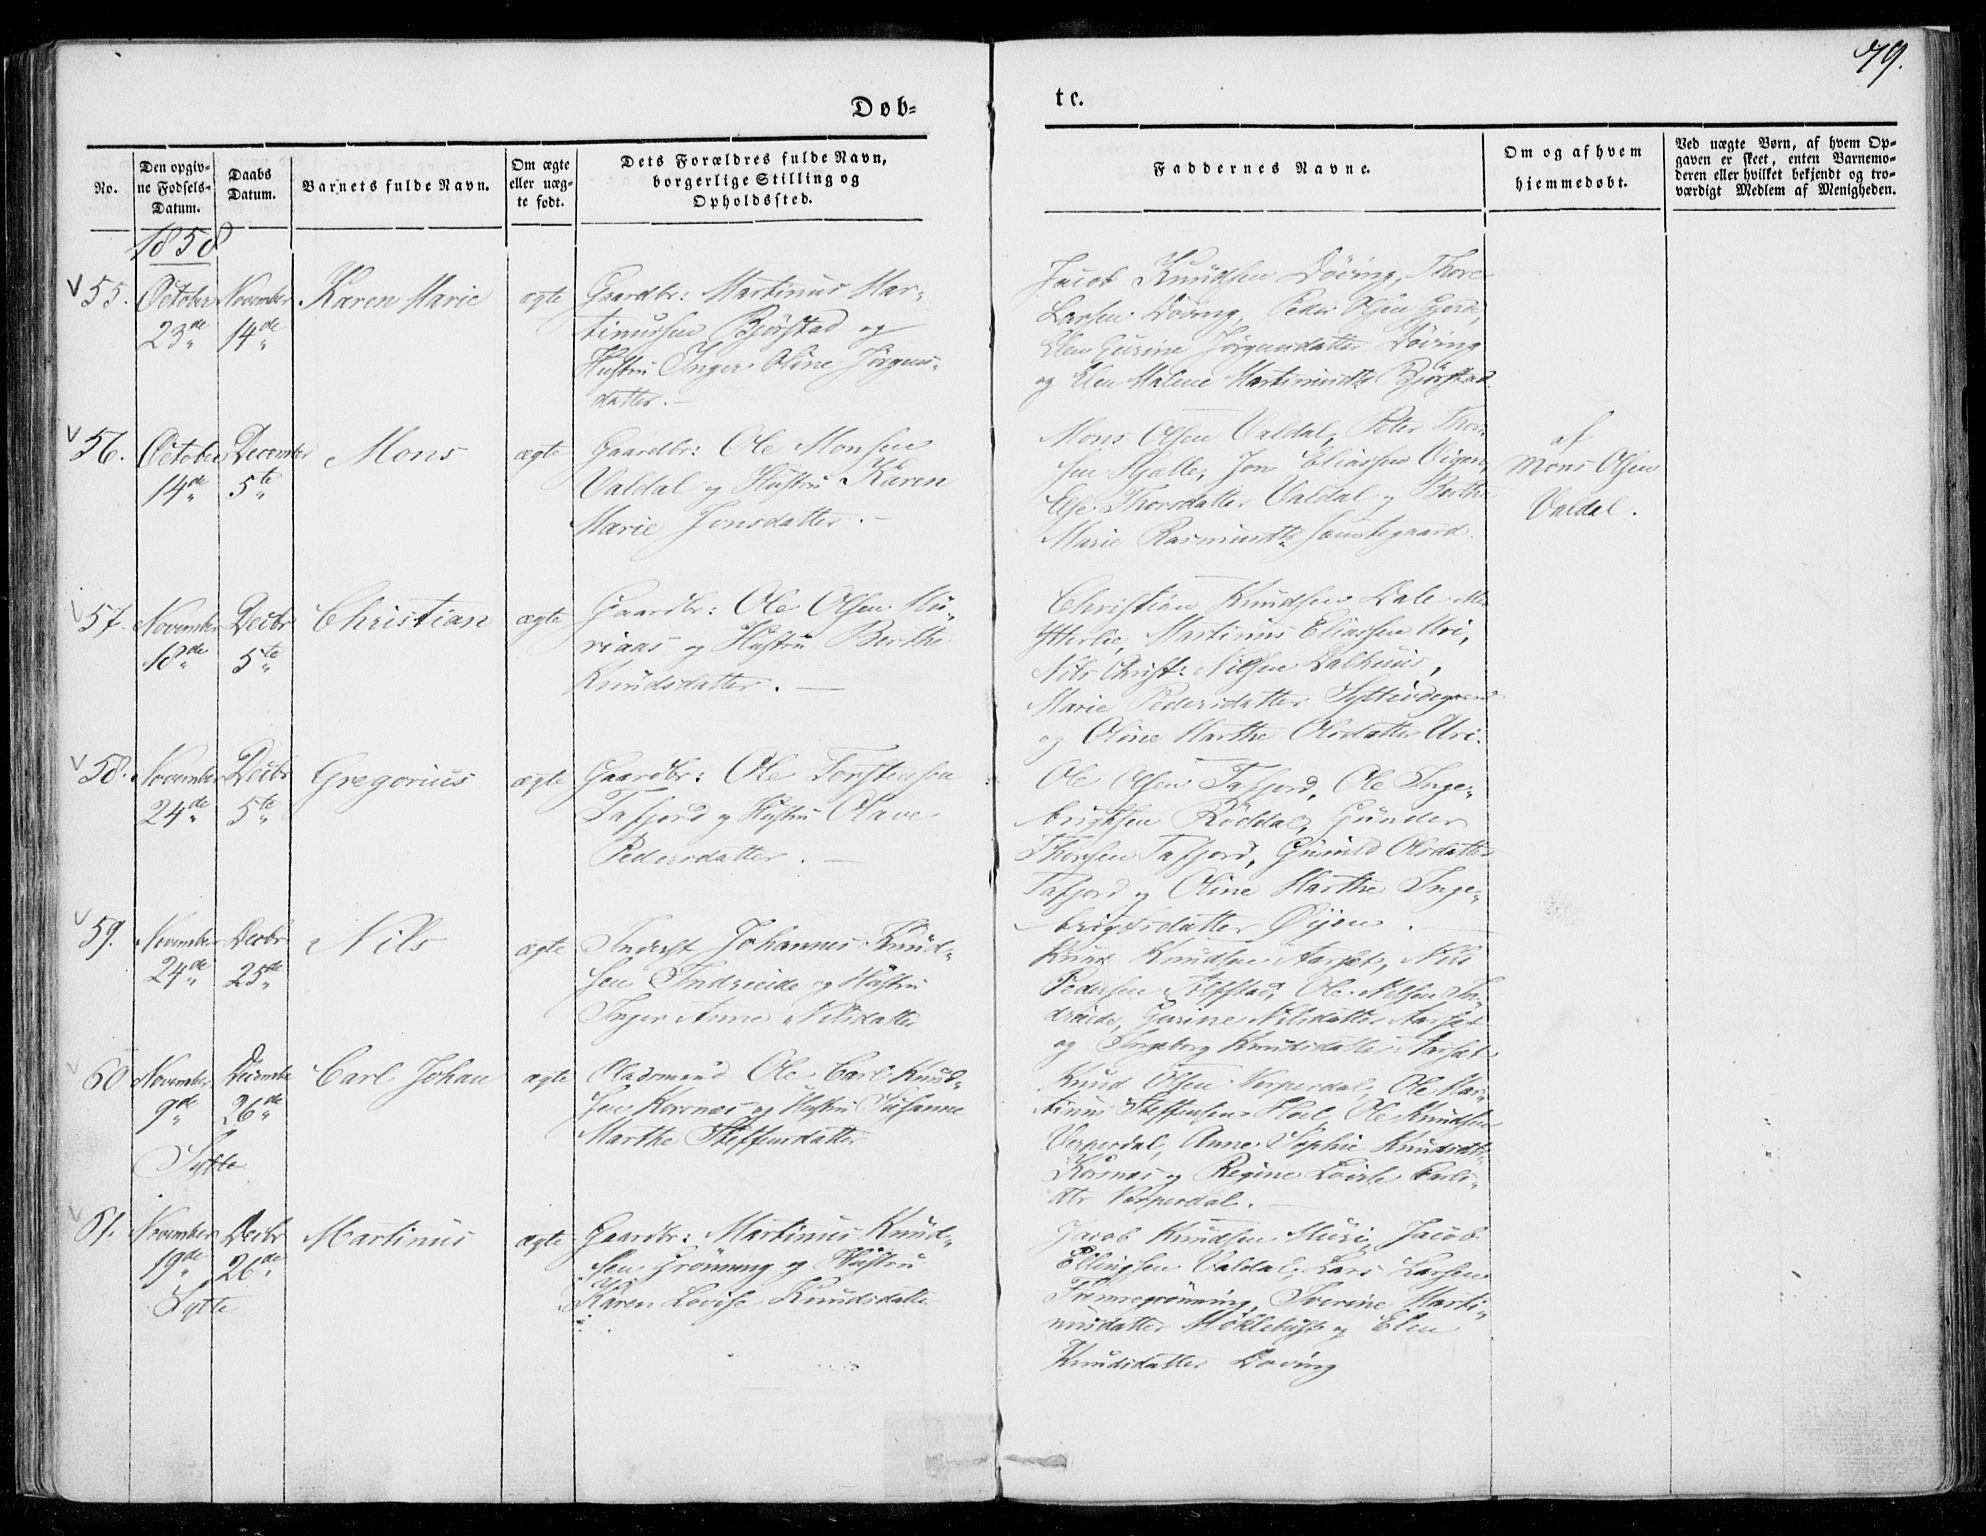 79.
Døb-
te.
No.
Den opgiv-
ne Fødsels-
Datum.
Daabs
Datum.
Barnets fulde Navn.
Om ægte
eller uæg-
te født.
Dets Forældres fulde Navn,
borgerlige Stilling og
Opholdssted.
Faddernes Navne.
Om og af hvem
hjemmedøbt.
Ved uægte Børn, af hvem Op-
gaven er skeet, enten Barnemo-
deren eller hvilket bekjendt og tro-
værdigt Medlem af Menigheden.
1858
55. October November Karen Marie ægte Gaardbr: Martinus Mar-
23de 14de tinussen Bjørstad og
Hustru Inger Oline Jørgens-
datter.
Jacob Knudsen Döving, Thore
Larsen Döving, Peder Olsen Gjerde,
Elen Gurine Jörgensdatter Döving
og Elen Malene Martinusdtr Bjørstad
56. October December Mons ægte Gaardbr: Ole Monsen
14de 5te Valdal og Hustru Karen
Marie Jonsdatter.
Mons Olsen Valdal, Peter Thor-
sen Hjelle, Jon Eliassen
Else Thorsdatter Valdal og Berthe
Marie Rasmusdtr
af
Mons Olsen
Valdal.
57. November Decbr Christian ægte Gaardbr: Ole Olsen Mu-
18de 5te riaas og Hustru Berthe
Knudsdatter.
Christian Knudsen Dale
Ytterlie, Martinus Eliassen Uri,
Nils Christ: Nilsen Dalhuus,
Marie Pedersdatter
og Oline Marthe Olsdatter Uri.
58. November Decbr Gregorius ægte Gaardbr: Ole Torstensen
24de 5te Tafjord og Hustru Olave
Pedersdatter.
Ole Olsen Tafjord, Ole Inge-
brigtsen Röddal, Gunder
Thorsen Tafjord, Gunild Olsdatter
Tafjord og Oline Marthe Inge-
brigtsdatter Öyen.
59. November Decbr Nils ægte Inderst Johannes Knud-
24de 25de sen Indreeide og Hustru
Inger Anne Nilsdatter
Knud Knudsen Aarset, Nils
Pedersen Alfstad, Ole Nilsen In-
dreeide, Gurine Nilsdatter Aarset
og Ingeborg Knudsdatter Aarset
60 November December Carl Johan ægte Pladsmand Ole Carl Knud-
9de 26de sen Korsnæs og Hustru Susanne
Marthe Steffensdatter
Sylte
Knud Olsen Verperdal, Ole Mar-
tinus Steffensen Hoel, Ole Knudsen
Verperdal, Anne Sophie Knudsdtr
Korsnæs og Regine Lovise Carls-
dtr Verperdal.
61. November Decbr Martinus ægte Gaardbr: Martinus Knud-
19de 26de sen Grönning og Hustru
Sylte Karen Lovise Knudsdatter
Jacob Knudsen Muri, Jacob
Ellingsen Valdal, Lars Larsen
Fremregrönning, Severine Marti-
nusdatter Möklebust og Elen
Knudsdatter Döving